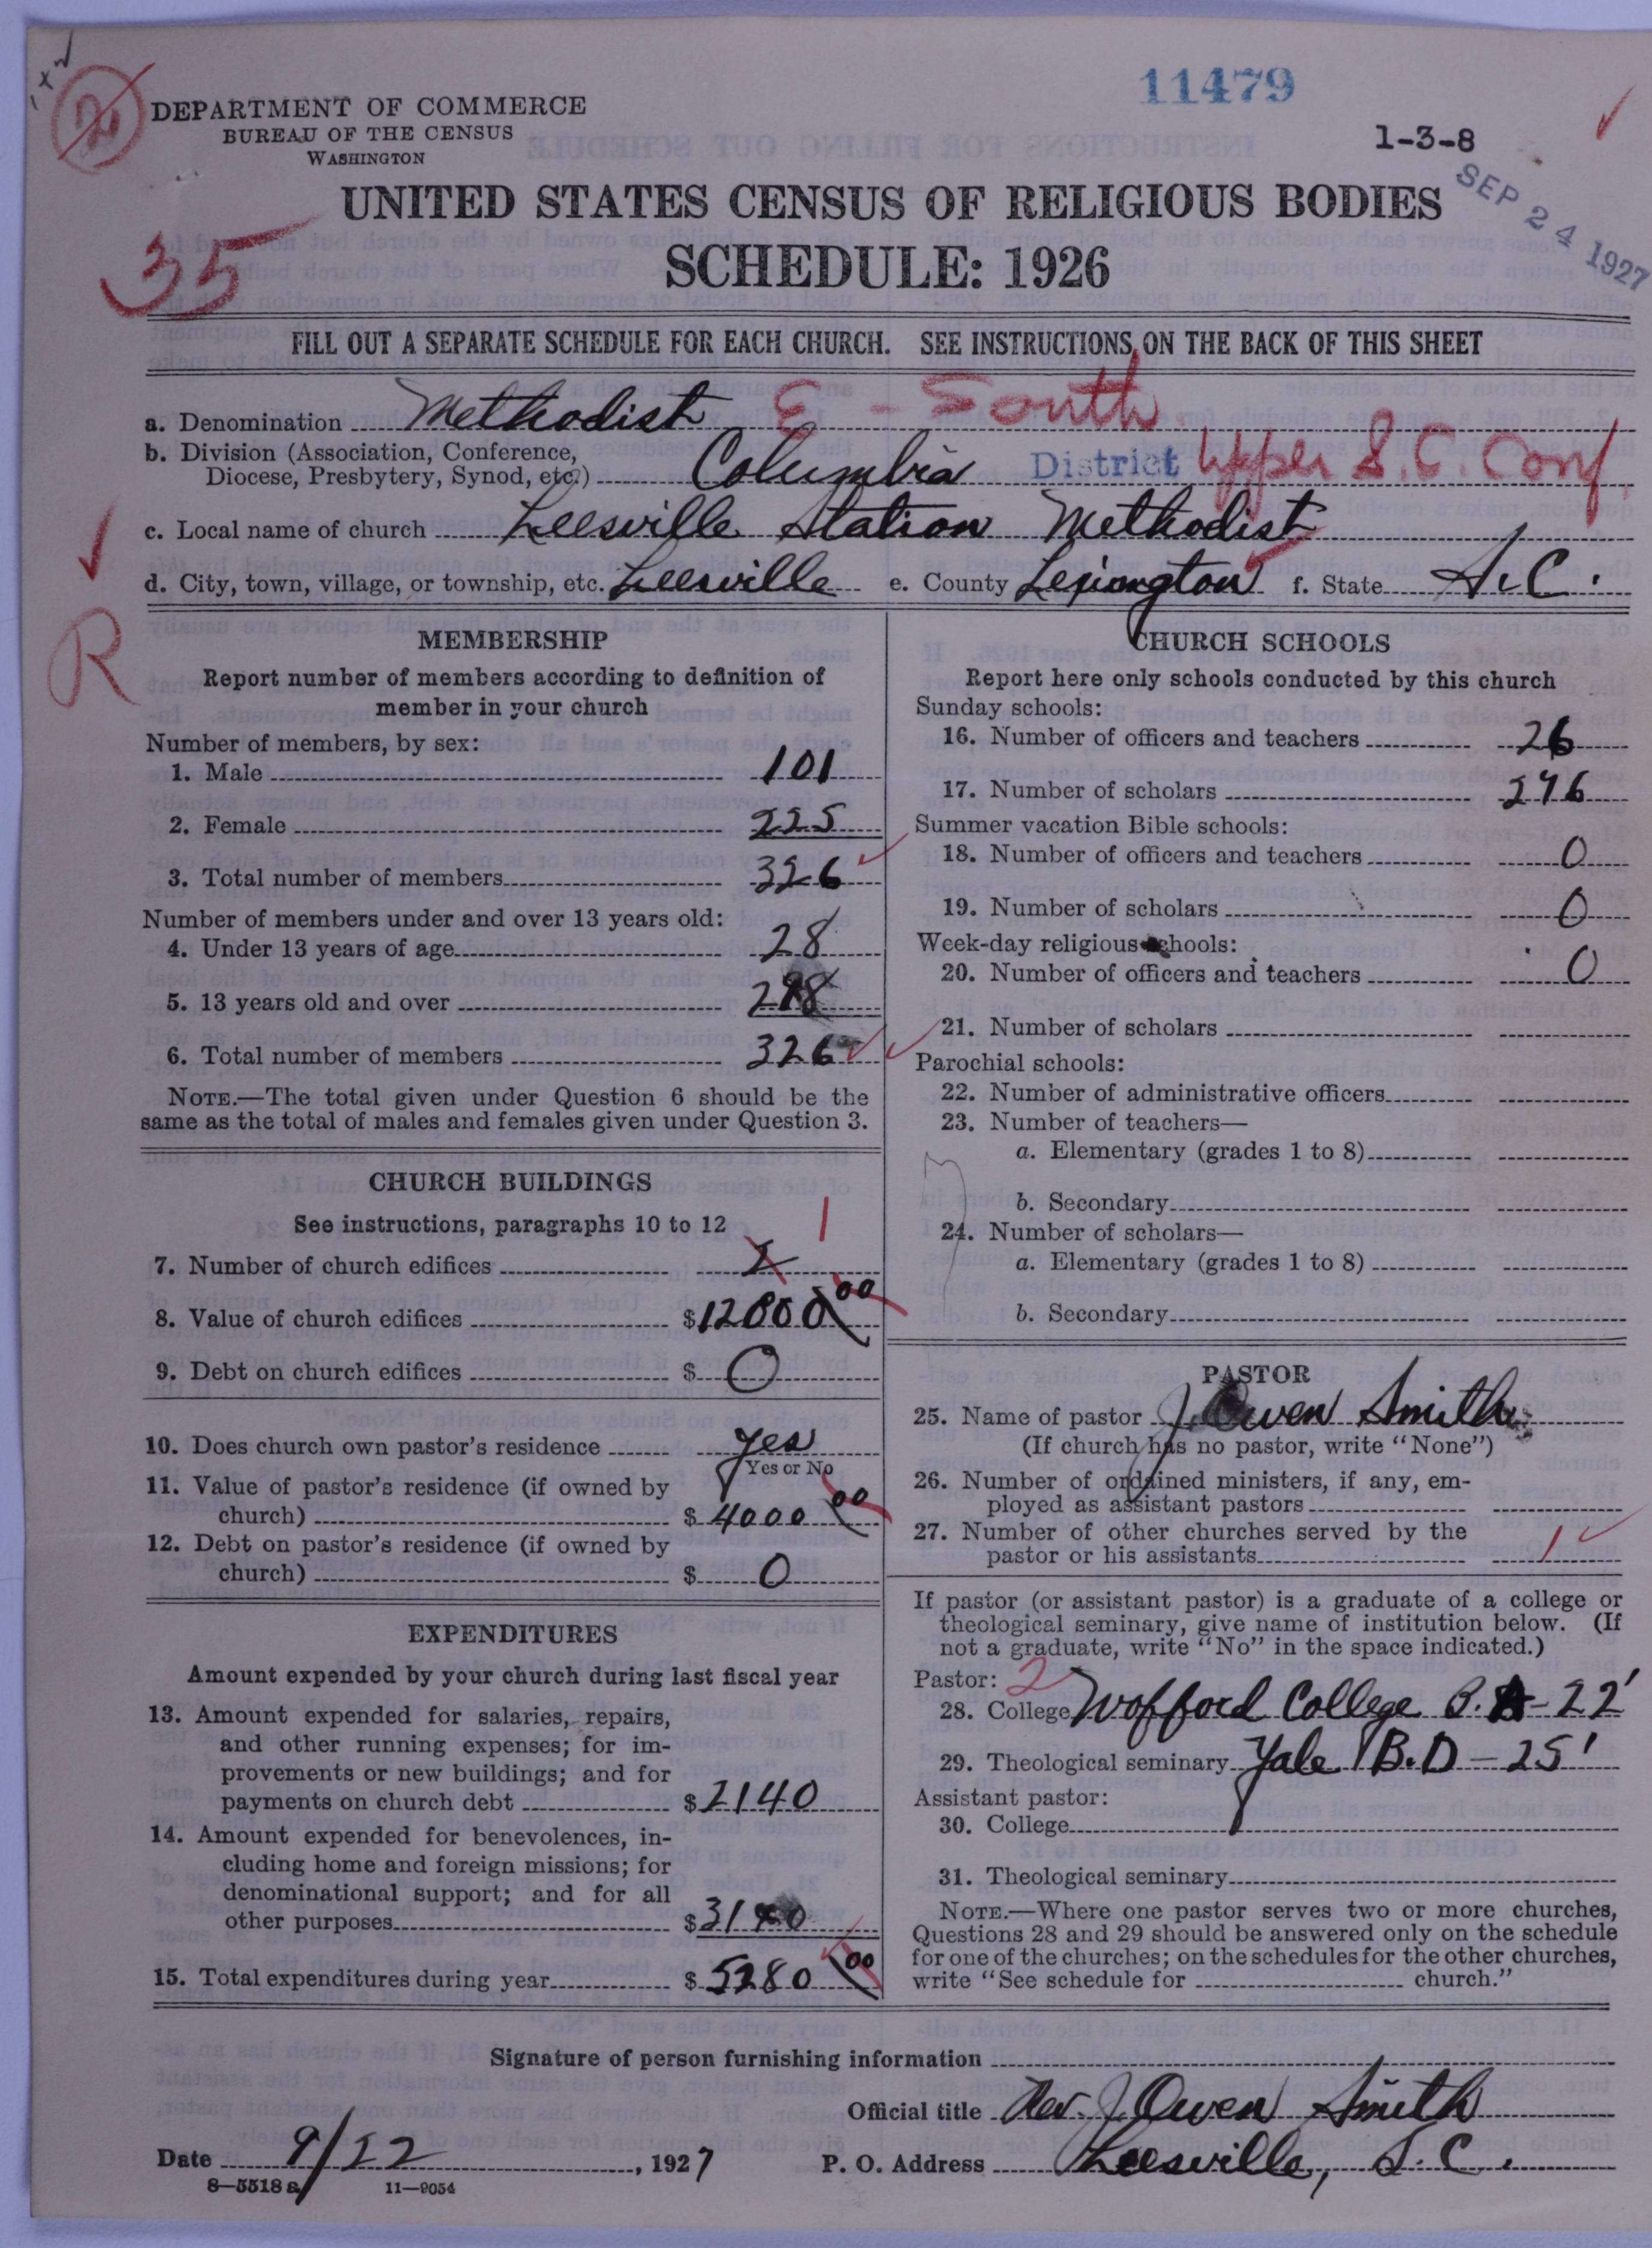 11479
DEPARTMENT OF COMMERCE
BUREAU OF THE CENSUS
WASHINGTON
1-3-8
SEP 24 1927
UNITED STATES CENSUS OF RELIGIOUS BODIES
SCHEDULE: 1926
35
FILL OUT A SEPARATE SCHEDULE FOR EACH CHURCH. SEE INSTRUCTIONS ON THE BACK OF THIS SHEET
a. Denomination Methodist E - South
b. Division (Association, Conference,
Diocese, Presbytery, Synod, etc.) Columbia District Upper S.C. Conf.
c. Local name of church Leesville Station Methodist
d. City, town, village, or township, etc. Leesville e. County Lexington f. State S.C.
R
MEMBERSHIP
Report number of members according to definition of
member in your church
Number of members, by sex:
1. Male 101
2. Female 225
3. Total number of members 326
Number of members under and over 13 years old:
4. Under 13 years of age 28
5. 13 years old and over 298
6. Total number of members 326
NOTE.—The total given under Question 6 should be the
same as the total of males and females given under Question 3.
CHURCH BUILDINGS
See instructions, paragraphs 10 to 12
1
7. Number of church edifices
8. Value of church edifices $12000 00
9. Debt on church edifices $ 0
10. Does church own pastor's residence yes
Yes or No
11. Value of pastor's residence (if owned by
church) $ 4000 00
12. Debt on pastor's residence (if owned by
church) $ 0
EXPENDITURES
Amount expended by your church during last fiscal year
13. Amount expended for salaries, repairs,
and other running expenses; for im-
provements or new buildings; and for
payments on church debt $2140
14. Amount expended for benevolences, in-
cluding home and foreign missions; for
denominational support; and for all
other purposes $3140
15. Total expenditures during year $ 5280 00
CHURCH SCHOOLS
Report here only schools conducted by this church
Sunday schools:
16. Number of officers and teachers 26
17. Number of scholars 276
Summer vacation Bible schools:
18. Number of officers and teachers 0
19. Number of scholars 0
Week-day religious schools:
20. Number of officers and teachers 0
21. Number of scholars
Parochial schools:
22. Number of administrative officers
23. Number of teachers—
a. Elementary (grades 1 to 8)
b. Secondary
24. Number of scholars—
a. Elementary (grades 1 to 8)
b. Secondary
PASTOR
25. Name of pastor J. Owen Smith
(If church has no pastor, write "None")
26. Number of ordained ministers, if any, em-
ployed as assistant pastors
27. Number of other churches served by the
pastor or his assistants 1
If pastor (or assistant pastor) is a graduate of a college or
theological seminary, give name of institution below. (If
not a graduate, write "No" in the space indicated.)
Pastor: 2
28. College Wofford College B.A-22'
29. Theological seminary Yale B.D - 25'
Assistant pastor:
30. College
31. Theological seminary
NOTE.—Where one pastor serves two or more churches,
Questions 28 and 29 should be answered only on the schedule
for one of the churches; on the schedules for the other churches,
write "See schedule for church."
Signature of person furnishing information
Official title Rev. J. Owen Smith
Date 9/22, 1927 P. O. Address Leesville, S.C.
8—5518 a 11—9054